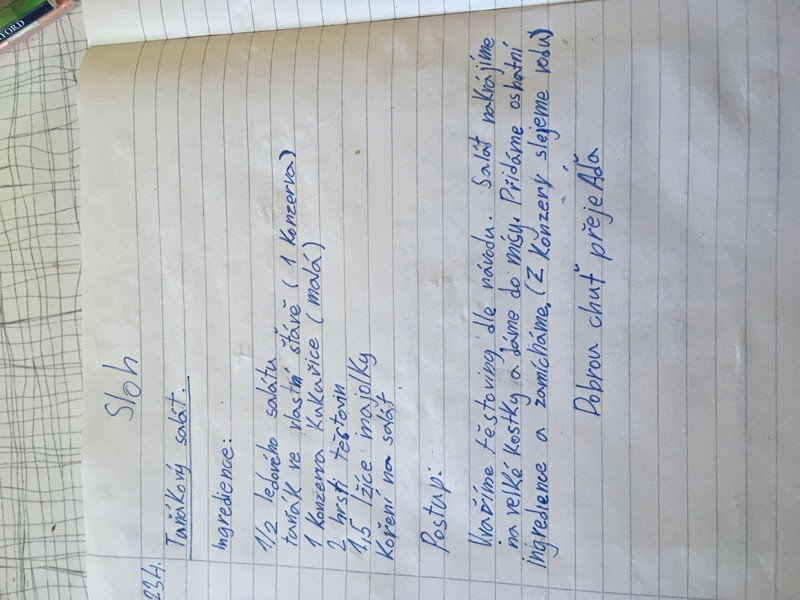 Sloh
23.4.
Tuňákový salát.
Ingredience:
1/2 ledového salátu
tuňák ve vlastní štávě (1 konzerva)
1 konzerva kukuřice (malá)
2 hrsti těstovin
1,5 lžíce majolky
Koření na salát
Postup:
Uvaříme těstoviny dle návodu. Salát nakrájíme
na velké kostky a dáme do mísy. Přidáme ostatní
ingredience a zamícháme. (Z konzervy slejeme vodu)
Dobrou chuť přeje Áďa